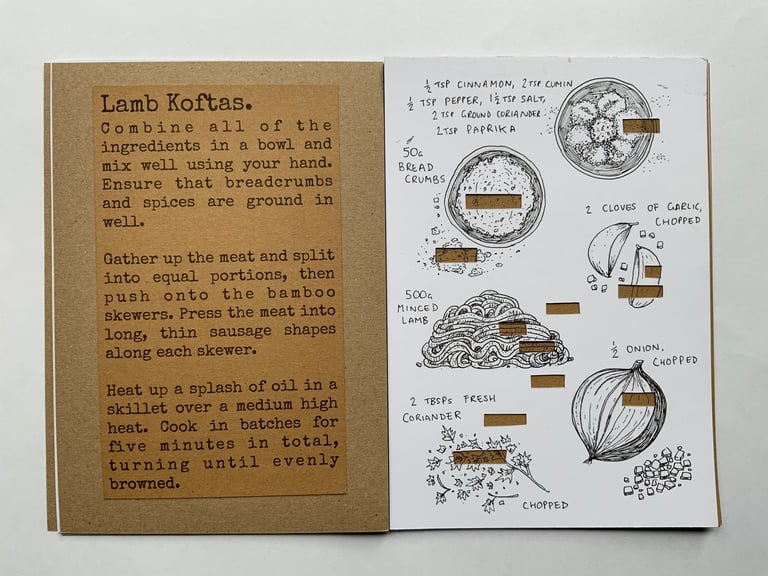 Lamb Koftas.
Combine all of the
ingredients in a bowl and
mix well using your hand.
Ensure that breadcrumbs
and spices are ground in
well.
Gather up the meat and split
into equal portions, then
push onto the bamboo
skewers. Press the meat into
long, thin sausage shapes
along each skewer.
Heat up a splash of oil in a
skillet over a medium high
heat. Cook in batches for
five minutes in total,
turning until evenly
browned.
½ TSP CINNAMON, 2 TSP CUMIN
½ TSP PEPPER, 1½ TSP SALT,
2 TSP GROUND CORIANDER
2 TSP PAPRIKA
50g
BREAD
CRUMBS
2 CLOVES OF GARLIC,
CHOPPED
500g
MINCED
LAMB
½ ONION,
CHOPPED
2 TBSPS FRESH
CORIANDER
CHOPPED